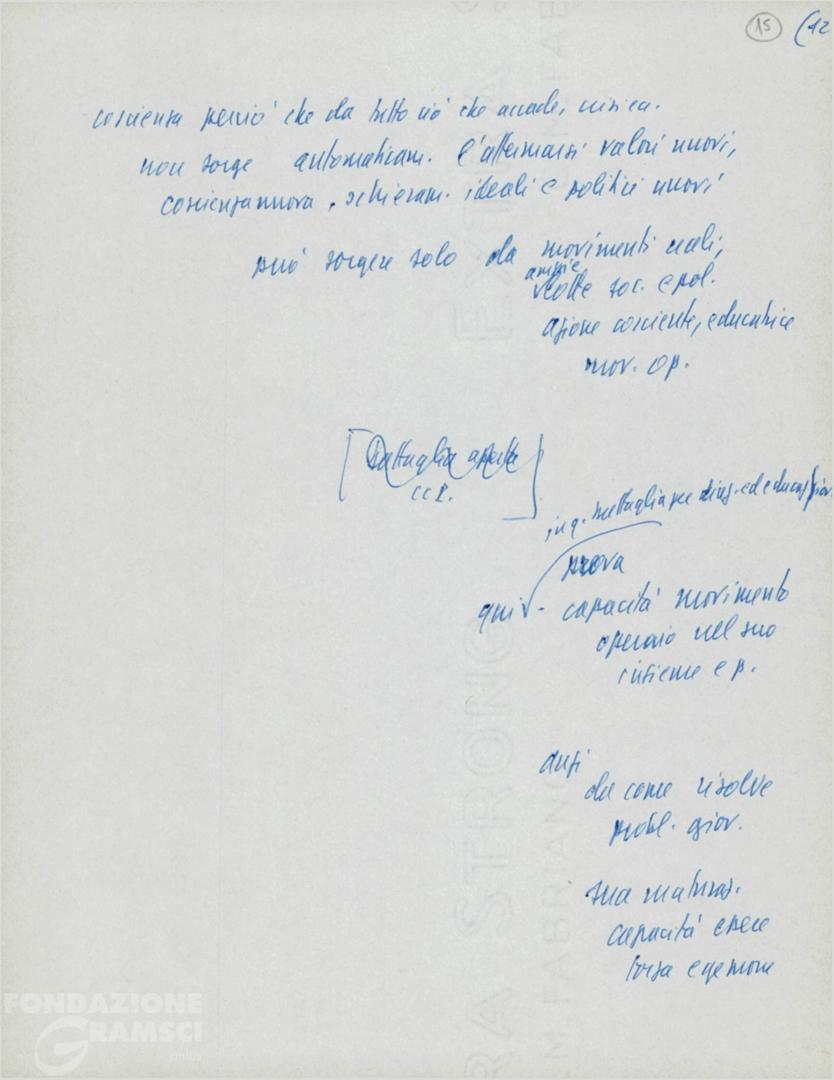 15 (12
coscienza perciò che da tutto ciò che accade,
non sorge automaticam. l'affermarsi valori nuovi,
coscienza nuova, schieram. ideali e politici nuovi
può sorgere solo da movimenti reali,
ampie
soc. e pol.
azione cosciente, educatrice
mov. op.
[Battaglia aperta]
in q. battaglia per
prova
qui - capacità movimento
operaio nel suo
insieme e p.
anzi
da come risolve
probl. giov.
sua maturaz.
capacità essere
forza egemone
EXTRA STRONG
EXTRA STRONG
M. FABRIANO
FONDAZIONE
GRAMSCI
onlus